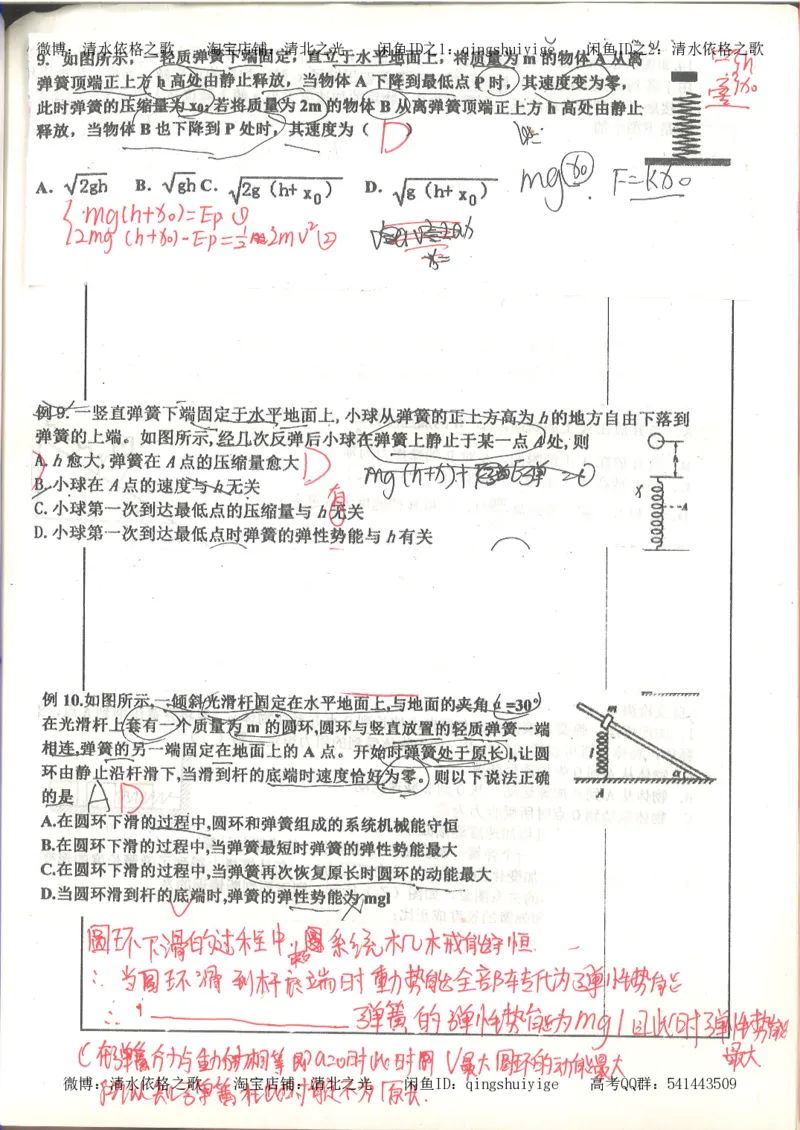 微博：清水依格之歌 淘宝店铺：清北之光 闲鱼ID之1：qingshuiyige 闲鱼ID之2：清水依格之歌
9. 如图所示，一轻质弹簧下端固定，直立于水平地面上，将质量为 m 的物体 A 从离
弹簧顶端正上方 h 高处由静止释放，当物体 A 下降到最低点 P 时，其速度变为零，
此时弹簧的压缩量为 x₀；若将质量为 2m 的物体 B 从离弹簧顶端正上方 h 高处由静止
释放，当物体 B 也下降到 P 处时，其速度为（ D ）
A. √2gh B. √gh C. √2g（h+x₀） D. √g（h+x₀）
mgx₀. F=kx₀
mg(h+x₀)=Ep ①
2mg(h+x₀)-Ep=½2mv² ②
例 9. 一竖直弹簧下端固定于水平地面上, 小球从弹簧的正上方高为 h 的地方自由下落到
弹簧的上端。如图所示,经几次反弹后小球在弹簧上静止于某一点 A 处, 则
A. h 愈大, 弹簧在 A 点的压缩量愈大 D
B. 小球在 A 点的速度与 h 无关
C. 小球第一次到达最低点的压缩量与 h 无关
有
D. 小球第一次到达最低点时弹簧的弹性势能与 h 有关
h
x
A
例 10.如图所示,一倾斜光滑杆固定在水平地面上,与地面的夹角 α =30°
在光滑杆上套有一个质量为 m 的圆环,圆环与竖直放置的轻质弹簧一端
相连,弹簧的另一端固定在地面上的 A 点。开始时弹簧处于原长 l,让圆
环由静止沿杆滑下,当滑到杆的底端时速度恰好为零。则以下说法正确
的是 A D
m
l
A
α
A.在圆环下滑的过程中,圆环和弹簧组成的系统机械能守恒
B.在圆环下滑的过程中,当弹簧最短时弹簧的弹性势能最大
C.在圆环下滑的过程中,当弹簧再次恢复原长时圆环的动能最大
D.当圆环滑到杆的底端时,弹簧的弹性势能为 mgl
圆环下滑的过程中 系统机械能守恒
∴ 当圆环滑到杆底端时重力势能全部转化为弹性势能
∴ 弹簧的弹性势能为mgl 且此时弹性势能
最大
C 在弹簧分力与重力分力相等即a=0时 此时圆 V最大 圆环的动能最大
所以 弹簧在此时 不为原长.
微博：清水依格之歌 淘宝店铺：清北之光 闲鱼ID：qingshuiyige 高考QQ群：541443509